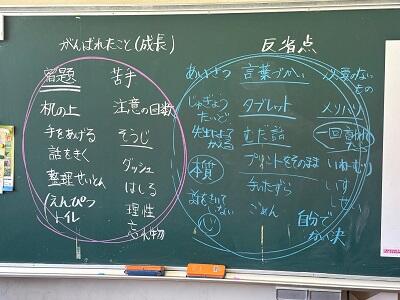 がんばれたこと(成長)
宿題
机の上
手をあげる
話をきく
整理せいとん
えんぴつ
トイレ
苦手
注意の回数
そうじ
ダッシュ
はしる
理性
忘れ物
反省点
あいさつ
じゅぎょう
たいど
先生によって
かえる
本質
話をきいて
いない
心
言葉づかい
タブレット
むだ話
プリントをそのまま
手いたずら
ごめん
必要のない
もの
メリハリ
一回言われ
たら
いねむり
いす
しせい
自分で
かい決